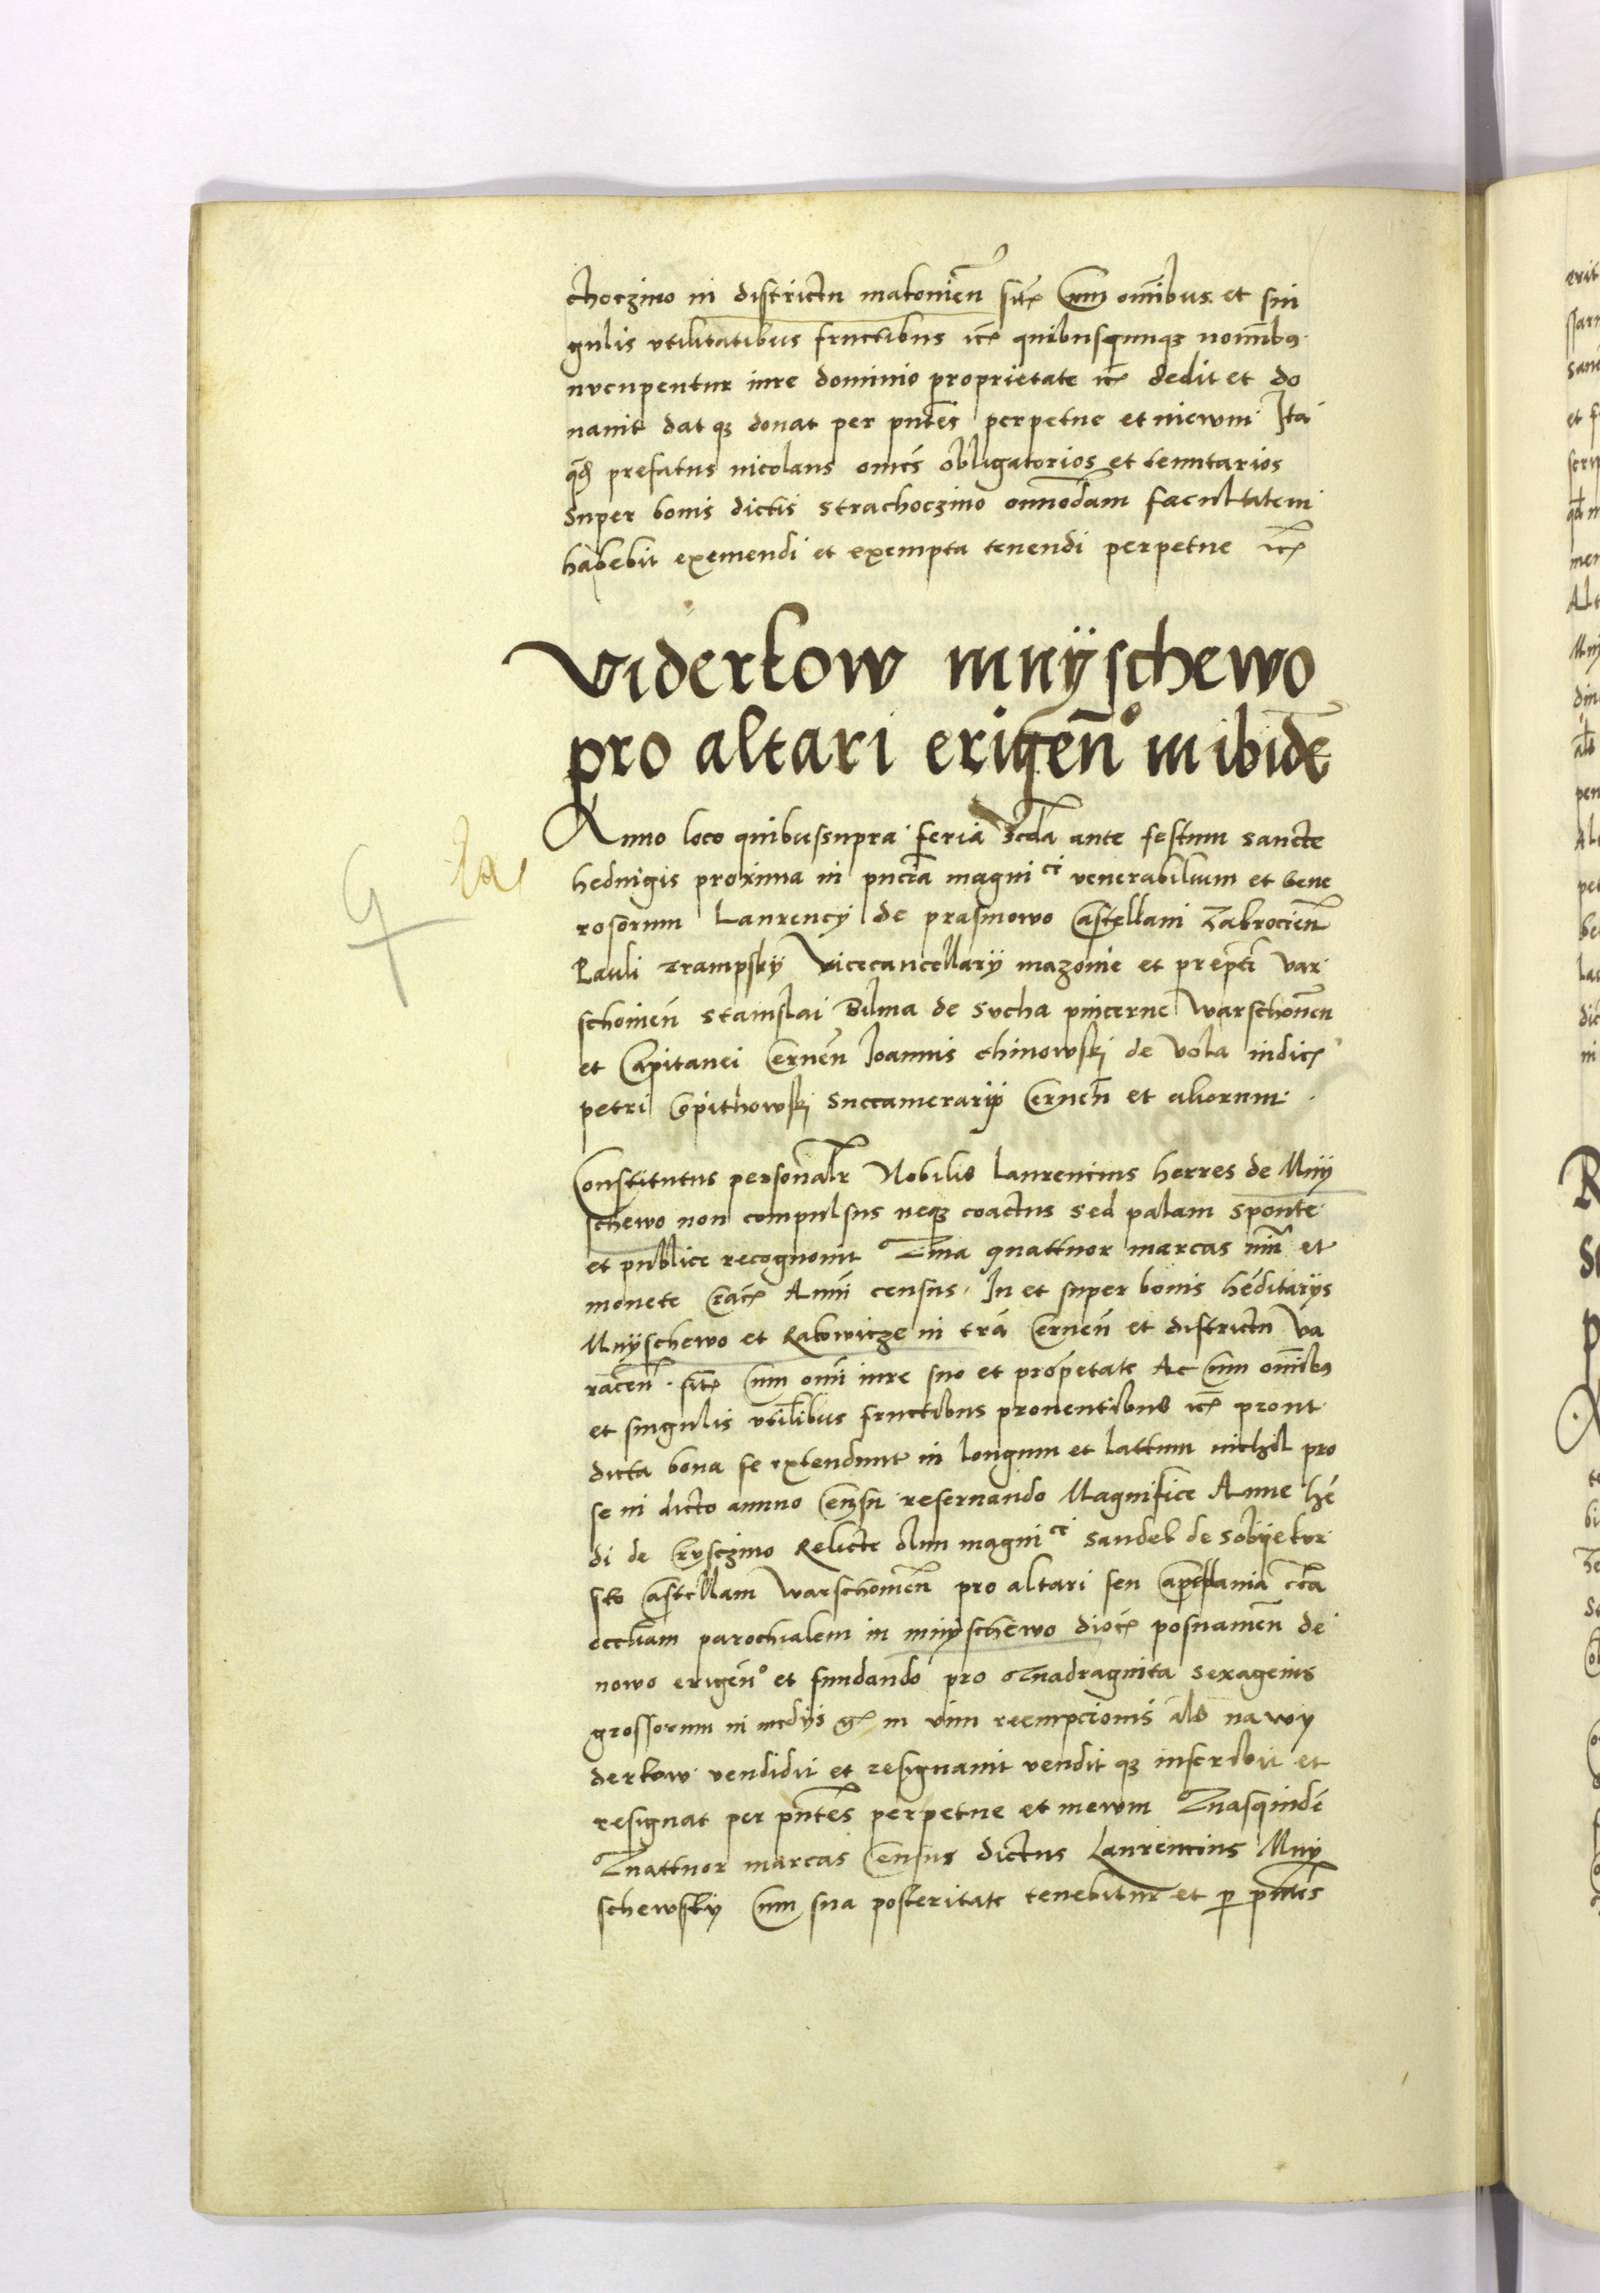 choczino in districtu makouien̄ sitꝭ Cum om̄ibus et sin
gulis vtilitatibus fructibus ꝛcꝭ quibuscunqꝫ nomībꝯ
nvcupentur iure dominio proprietate ꝛcꝭ dedit et do
nauit dat qꝫ donat per pn̄tes perpetue et in ewm Ita
prefatus nicolaus om̄es obligatorios et tenutarios
super bonis dictis Strachoczino om̄nodam facultatem
habebit exemendi et exempta tenendi perpetue ꝛcꝭ
Viderkow mnÿschewo
pro altari erigen̄° in ibidē
Anno loco quibussupra feria 2cda ante festum sancte
heduigis proxima in pn̄cia magniᶜⁱ venerabilium et Gene
rosorum Laurencÿ de prasmowo Castellani Zakrocien̄
Pauli Trampskÿ Vicecancellarÿ mazouie et prep̄ti var
schouien̄ Stanislai Bilma de Sucha pincerne Warschouien̄
et Capitanei Cernen̄ Joannis chinowskj de Vola iudicꝭ
petri Copithowskj Succamerarÿ Cernen̄ et aliorum
Constitutus personalr̄ Nobilis Laurencius herres de Mnÿ
schewo non compulsus neqꝫ coactus sed palam sponte
et publice recognouit Quia quattuor marcas nūi et
monete Annui census In et super bonis hēditarÿs
Mnÿschewo et Rakowicze in tr̄a Cernen̄ et districtu Va
racen̄ sitꝭ Cum om̄i iure suo et proprietate Ac Cum om̄ibꝯ
et singulis vtil̄ibus fructibus prouentibus ꝛcꝭ prout
dicta bona se extendunt in longum et lattum nichil pro
se in dicto annuo Censu reseruando Magnifice Anne hē
di de Cryscziino Relicte olim magniᶜⁱ Sandek de Sobÿekur
sko Castellani Warschouien̄ pro altari seu Capellania
eccl̄iam parochialem in mnÿschewo diocꝭ posnanien̄ de
nowo erigen̄° et fundando pro Quadraginta sexagenis
grossorum in medÿs gꝭ in vim reempcionis al̄s na wy
derkow vendidit et resignauit vendit qꝫ inscribit et
resignat per pn̄tes perpetue et in ewm Quasquidē
Quattuor marcas Census dictus Laurencius Mnÿ
schewsky Cum sua posteritate tenebitur et p pn̄tes